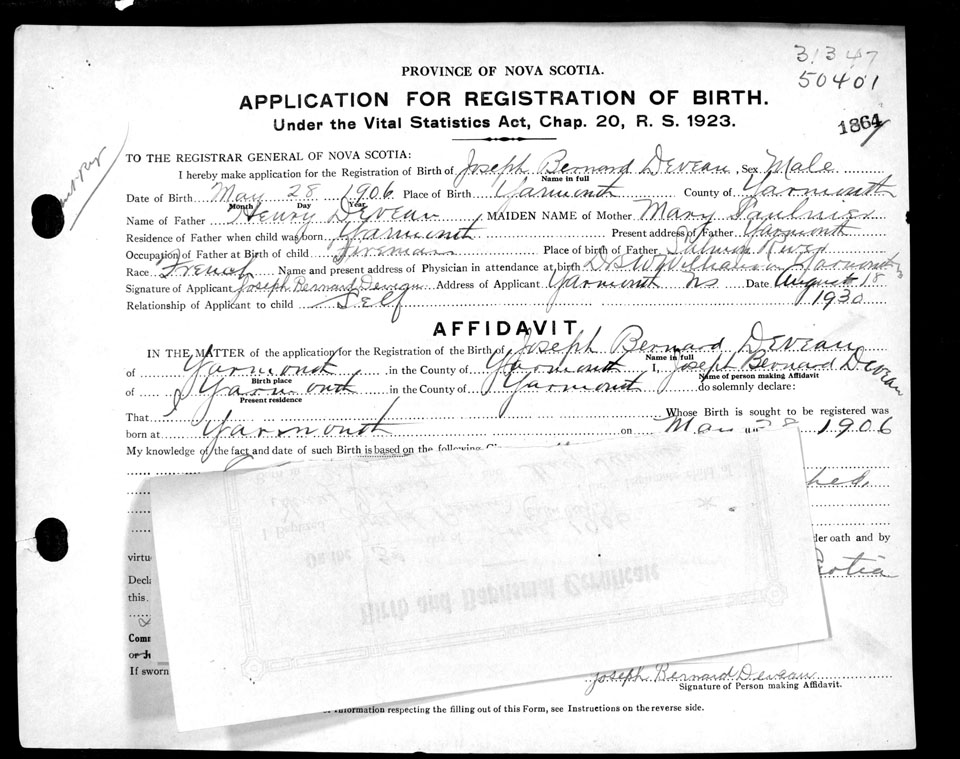 31347
50401
PROVINCE OF NOVA SCOTIA.
APPLICATION FOR REGISTRATION OF BIRTH.
Under the Vital Statistics Act, Chap. 20, R. S. 1923.
1864
TO THE REGISTRAR GENERAL OF NOVA SCOTIA:
I hereby make application for the Registration of Birth of Joseph Bernard Deveau, Sex Male
Name in full
Date of Birth May 28 1906 Place of Birth Yarmouth County of Yarmouth
Month Day Year
Name of Father Henry Deveau MAIDEN NAME of Mother Mary Paulnier
Residence of Father when child was born Yarmouth Present address of Father Yarmouth
Occupation of Father at Birth of child Foreman Place of birth of Father Salmon River
Race French Name and present address of Physician in attendance at birth Yarmouth
Signature of Applicant Joseph Bernard Deveau Address of Applicant Yarmouth NS Date August 18
1930
Relationship of Applicant to child Self
AFFIDAVIT
IN THE MATTER of the application for the Registration of the Birth of Joseph Bernard Deveau
Name in full
of Yarmouth in the County of Yarmouth I, Joseph Bernard Deveau
Birth place Name of person making Affidavit
of Yarmouth in the County of Yarmouth do solemnly declare:
Present residence
That I Whose Birth is sought to be registered was
born at Yarmouth on May 28 1906
My knowledge of the fact and date of such Birth is based on the following
der oath and by
virtu
Scotia
Decla
this
Comm
or Ju
If sworn
Birth and Baptismal Certificate
On the
Joseph Bernard Deveau
Signature of Person making Affidavit.
information respecting the filling out of this Form, see Instructions on the reverse side.